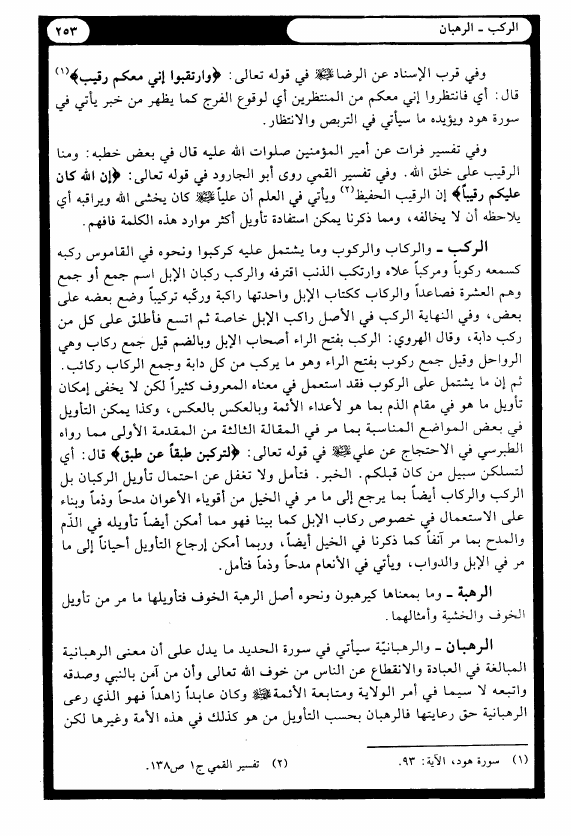 الركب ـ الرهبان
٢٥٣
وفي قرب الإسناد عن الرضا ﷺ في قوله تعالى: ﴿وارتقبوا إني معكم رقيب﴾(١)
قال: أي فانتظروا إني معكم من المنتظرين أي لوقوع الفرج كما يظهر من خبر يأتي في
سورة هود ويؤيده ما سيأتي في التربص والانتظار.
وفي تفسير فرات عن أمير المؤمنين صلوات الله عليه قال في بعض خطبه: ومنا
الرقيب على خلق الله. وفي تفسير القمي روى أبو الجارود في قوله تعالى: ﴿إن الله كان
عليكم رقيباً﴾ إن الرقيب الحفيظ(٢) ويأتي في العلم أن علياً ﷺ كان يخشى الله ويراقبه أي
يلاحظه أن لا يخالفه، ومما ذكرنا يمكن استفادة تأويل أكثر موارد هذه الكلمة فافهم.
الركب ـ والركاب والركوب وما يشتمل عليه كركبوا ونحوه في القاموس ركبه
كسمعه ركوباً ومركباً علاه وارتكب الذنب اقترفه والركب ركبان الإبل اسم جمع أو جمع
وهم العشرة فصاعداً والركاب ككتاب الإبل واحدتها راكبة وركّبه تركيباً وضع بعضه على
بعض، وفي النهاية الركب في الأصل راكب الإبل خاصة ثم اتسع فأطلق على كل من
ركب دابة، وقال الهروي: الركب بفتح الراء أصحاب الإبل وبالضم قيل جمع ركاب وهي
الرواحل وقيل جمع ركوب بفتح الراء وهو ما يركب من كل دابة وجمع الركاب ركائب.
ثم إن ما يشتمل على الركوب فقد استعمل في معناه المعروف كثيراً لكن لا يخفى إمكان
تأويل ما هو في مقام الذم بما هو لأعداء الأئمة وبالعكس بالعكس، وكذا يمكن التأويل
في بعض المواضع المناسبة بما مر في المقالة الثالثة من المقدمة الأولى مما رواه
الطبرسي في الاحتجاج عن علي ﷺ في قوله تعالى: ﴿لتركبن طبقاً عن طبق﴾ قال: أي
لتسلكن سبيل من كان قبلكم. الخبر. فتأمل ولا تغفل عن احتمال تأويل الركبان بل
الركب والركاب أيضاً بما يرجع إلى ما مر في الخيل من أقوياء الأعوان مدحاً وذماً وبناء
على الاستعمال في خصوص ركاب الإبل كما بينا فهو مما أمكن أيضاً تأويله في الذّم
والمدح بما مر آنفاً كما ذكرنا في الخيل أيضاً، وربما أمكن إرجاع التأويل أحياناً إلى ما
مر في الإبل والدواب، ويأتي في الأنعام مدحاً وذماً فتأمل.
الرهبة ـ وما بمعناها كيرهبون ونحوه أصل الرهبة الخوف فتأويلها ما مر من تأويل
الخوف والخشية وأمثالهما.
الرهبان ـ والرهبانيّة سيأتي في سورة الحديد ما يدل على أن معنى الرهبانية
المبالغة في العبادة والانقطاع عن الناس من خوف الله تعالى وأن من آمن بالنبي وصدقه
واتبعه لا سيما في أمر الولاية ومتابعة الأئمة ﷺ وكان عابداً زاهداً فهو الذي رعى
الرهبانية حق رعايتها فالرهبان بحسب التأويل من هو كذلك في هذه الأمة وغيرها لكن
(١) سورة هود، الآية: ٩٣.
(٢) تفسير القمي ج١ ص١٣٨.